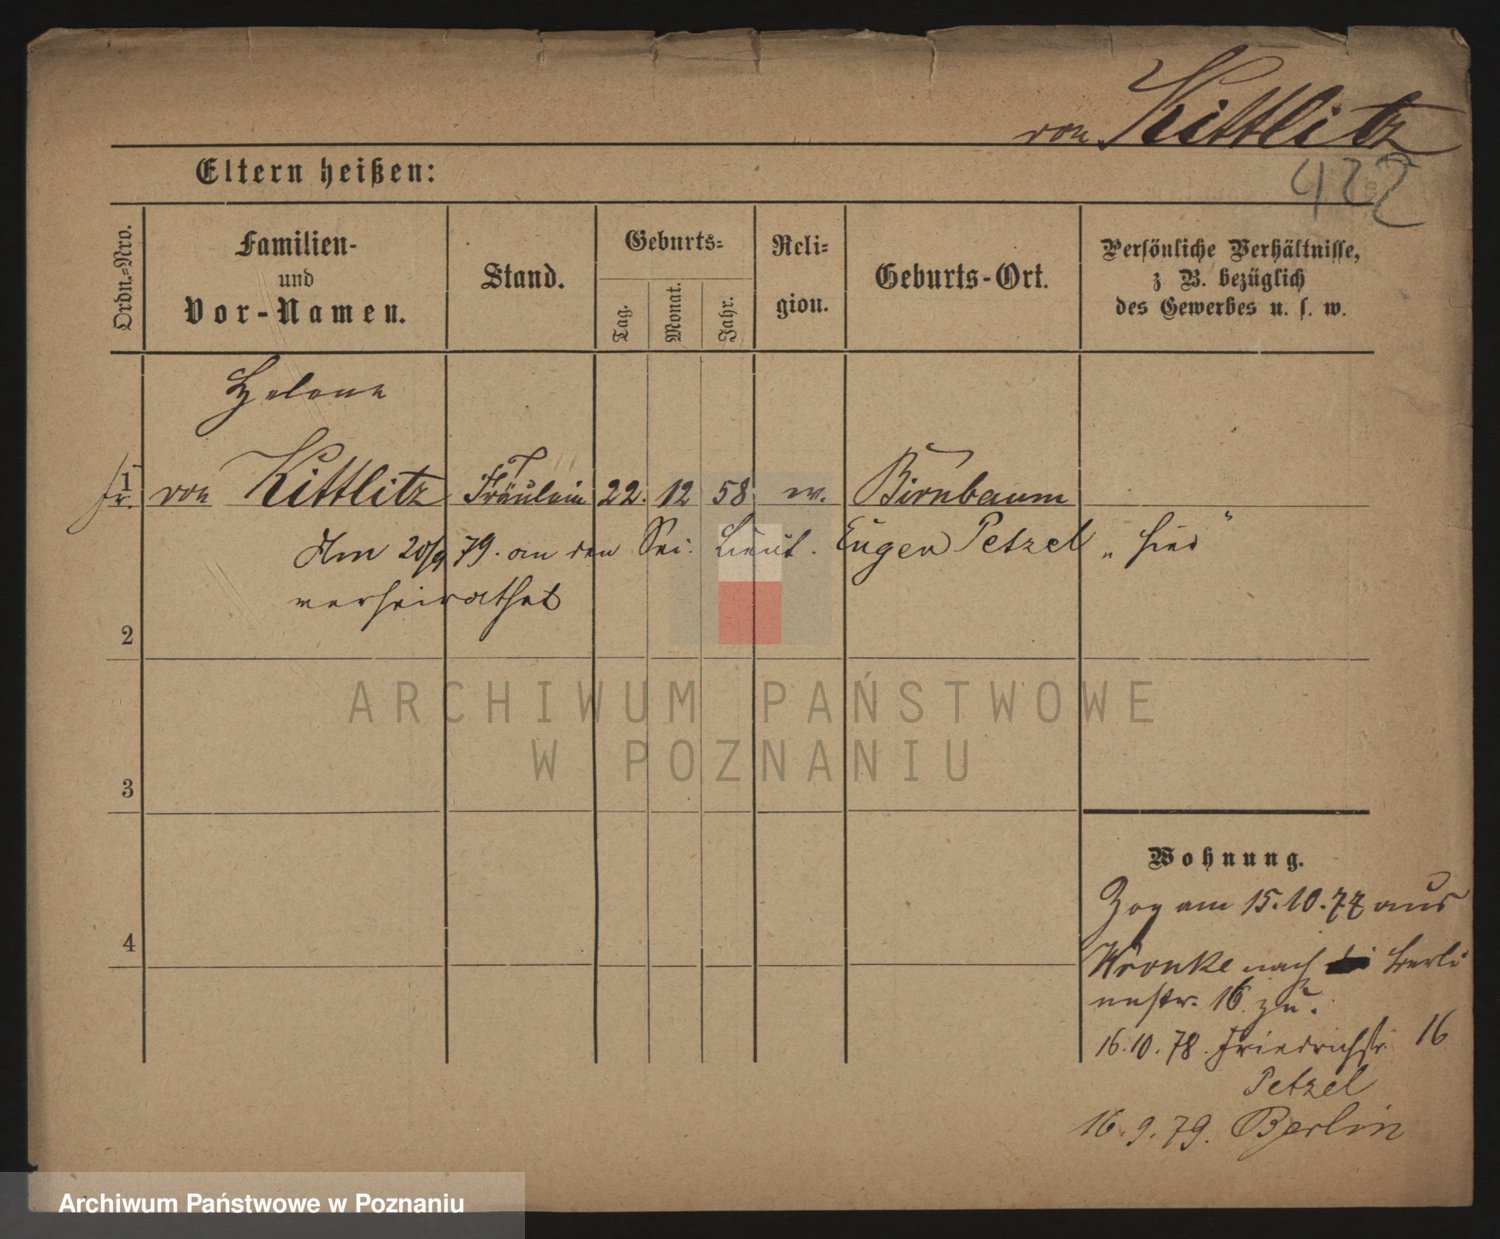 von Kittlitz
422
Eltern heißen:
Ordn.=Nro.
Familien-
und
Vor-Namen.
Stand.
Geburts=
Tag.
Monat.
Jahr.
Reli=
gion.
Geburts-Ort.
Persönliche Verhältnisse,
z. B. bezüglich
des Gewerbes u. s. w.
Helene
1 von Kittlitz Fräulein 22. 12 58 w. Birnbaum
Am 20/9 79. an den Lieut. Eugen Petzel „hier"
verheirathet
2
3
4
Wohnung.
Zog am 15.10.77 aus
Wronke nach Berli
nerstr. 16 zu.
16.10.78. Friedrichstr 16
Petzel
16.9.79. Berlin
ARCHIWUM PAŃSTWOWE
W POZNANIU
Archiwum Państwowe w Poznaniu